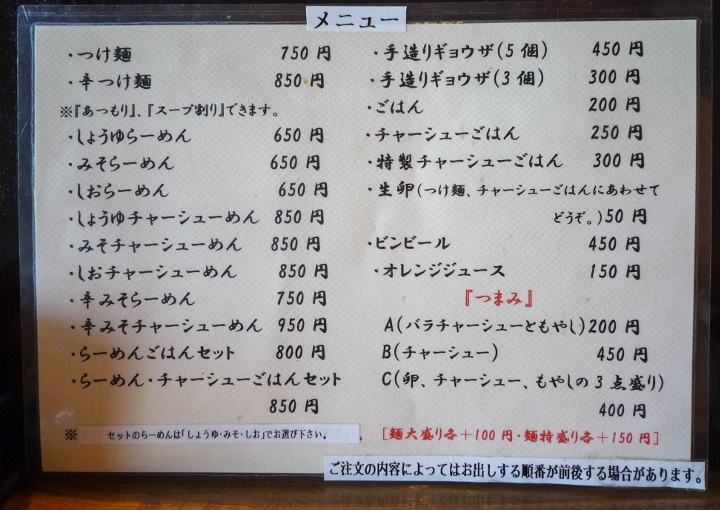 メニュー
・つけ麺 750円
・辛つけ麺 850円
※『あつもり』、『スープ割り』できます。
・しょうゆらーめん 650円
・みそらーめん 650円
・しおらーめん 650円
・しょうゆチャーシューめん 850円
・みそチャーシューめん 850円
・しおチャーシューめん 850円
・辛みそらーめん 750円
・辛みそチャーシューめん 950円
・らーめんごはんセット 800円
・らーめん・チャーシューごはんセット
850円
※ セットのらーめんは「しょうゆ・みそ・しお」でお選び下さい。
・手造りギョウザ(5個) 450円
・手造りギョウザ(3個) 300円
・ごはん 200円
・チャーシューごはん 250円
・特製チャーシューごはん 300円
・生卵(つけ麺、チャーシューごはんにあわせて
どうぞ。)50円
・ビンビール 450円
・オレンジジュース 150円
『つまみ』
A(バラチャーシューともやし)200円
B(チャーシュー) 450円
C(卵、チャーシュー、もやしの3点盛り)
400円
[麺大盛り各+100円・麺特盛り各+150円]
ご注文の内容によってはお出しする順番が前後する場合があります。